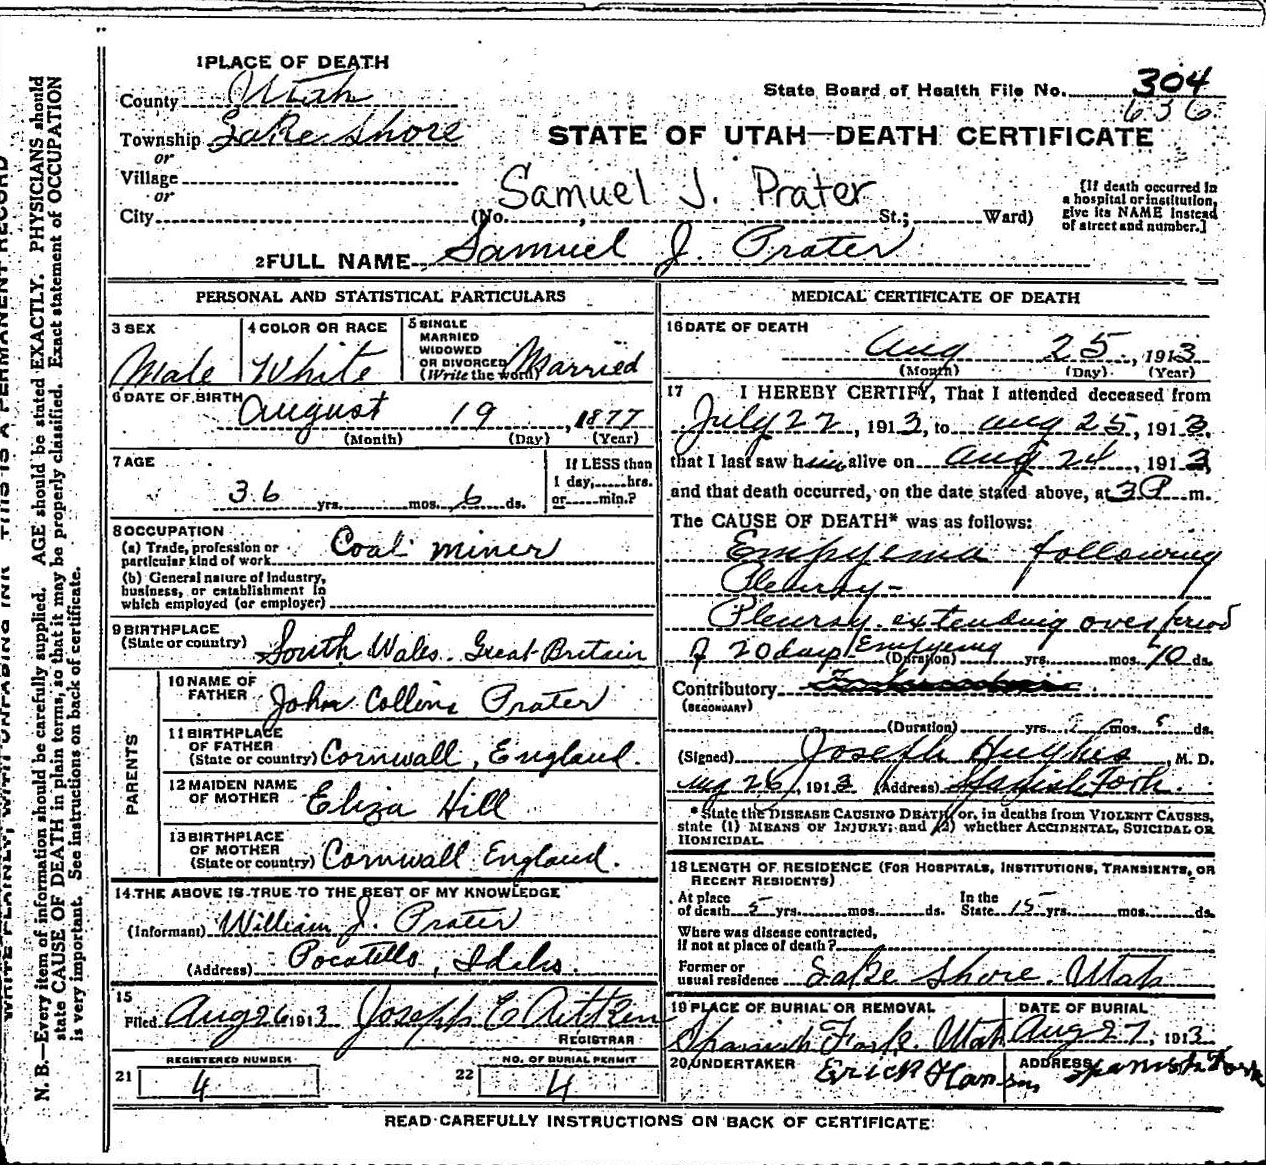 1 PLACE OF DEATH
County Utah
Township Lake Shore
or
Village
or
City
State Board of Health File No. 304
636
STATE OF UTAH—DEATH CERTIFICATE
Samuel J. Prater
(No. , St.; Ward)
[If death occurred in a hospital or institution, give its NAME instead of street and number.]
2 FULL NAME Samuel J. Prater
PERSONAL AND STATISTICAL PARTICULARS
3 SEX
Male
4 COLOR OR RACE
White
5 SINGLE
MARRIED
WIDOWED
OR DIVORCED
(Write the word)
Married
6 DATE OF BIRTH August 19, 1877
(Month) (Day) (Year)
7 AGE
36 yrs. mos. 6 ds.
If LESS than
1 day, hrs.
or min.?
8 OCCUPATION
(a) Trade, profession or
particular kind of work Coal miner
(b) General nature of industry,
business, or establishment in
which employed (or employer)
9 BIRTHPLACE
(State or country) South Wales. Great Britain
PARENTS
10 NAME OF
FATHER John Collins Prater
11 BIRTHPLACE
OF FATHER
(State or country) Cornwall, England.
12 MAIDEN NAME
OF MOTHER Eliza Hill
13 BIRTHPLACE
OF MOTHER
(State or country) Cornwall England.
14 THE ABOVE IS TRUE TO THE BEST OF MY KNOWLEDGE
(Informant) William J. Prater
(Address) Pocatello, Idaho.
15
Filed Aug 26 1913 Joseph E Aitken
REGISTRAR
REGISTERED NUMBER
21 4
NO. OF BURIAL PERMIT
22 4
MEDICAL CERTIFICATE OF DEATH
16 DATE OF DEATH
Aug 25, 1913
(Month) (Day) (Year)
17 I HEREBY CERTIFY, That I attended deceased from
July 22, 1913, to Aug 25, 1913,
that I last saw him alive on Aug 24, 1913,
and that death occurred, on the date stated above, at 3 P m.
The CAUSE OF DEATH* was as follows:
Empyema following
Pleurisy-
Pleurisy extending over period
of 20 days Empyema (Duration) yrs. mos. 10 ds.
Contributory
(SECONDARY)
(Duration) yrs. mos. ds.
(Signed) Joseph Hughes, M. D.
Aug 26, 1913 (Address) Spanish Fork.
* State the DISEASE CAUSING DEATH, or, in deaths from VIOLENT CAUSES,
state (1) MEANS OF INJURY; and (2) whether ACCIDENTAL, SUICIDAL OR
HOMICIDAL.
18 LENGTH OF RESIDENCE (FOR HOSPITALS, INSTITUTIONS, TRANSIENTS, OR
RECENT RESIDENTS)
At place
of death 5 yrs. mos. ds.
In the
State 15 yrs. mos. ds.
Where was disease contracted,
if not at place of death?
Former or
usual residence Lake Shore. Utah
19 PLACE OF BURIAL OR REMOVAL
Spanish Fork. Utah
DATE OF BURIAL
Aug 27, 1913
20 UNDERTAKER Erick Hansen
ADDRESS Spanish Fork
READ CAREFULLY INSTRUCTIONS ON BACK OF CERTIFICATE
WRITE PLAINLY, WITH UNFADING INK THIS IS A PERMANENT RECORD
N. B.—Every item of information should be carefully supplied. AGE should be stated EXACTLY. PHYSICIANS should
state CAUSE OF DEATH in plain terms, so that it may be properly classified. Exact statement of OCCUPATION
is very important. See instructions on back of certificate.